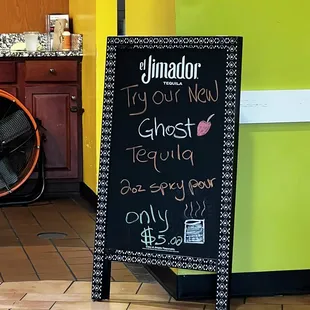 el
Jimador
TEQUILA
Try our New
Ghost
Tequila
2oz spicy pour
only
$5.00